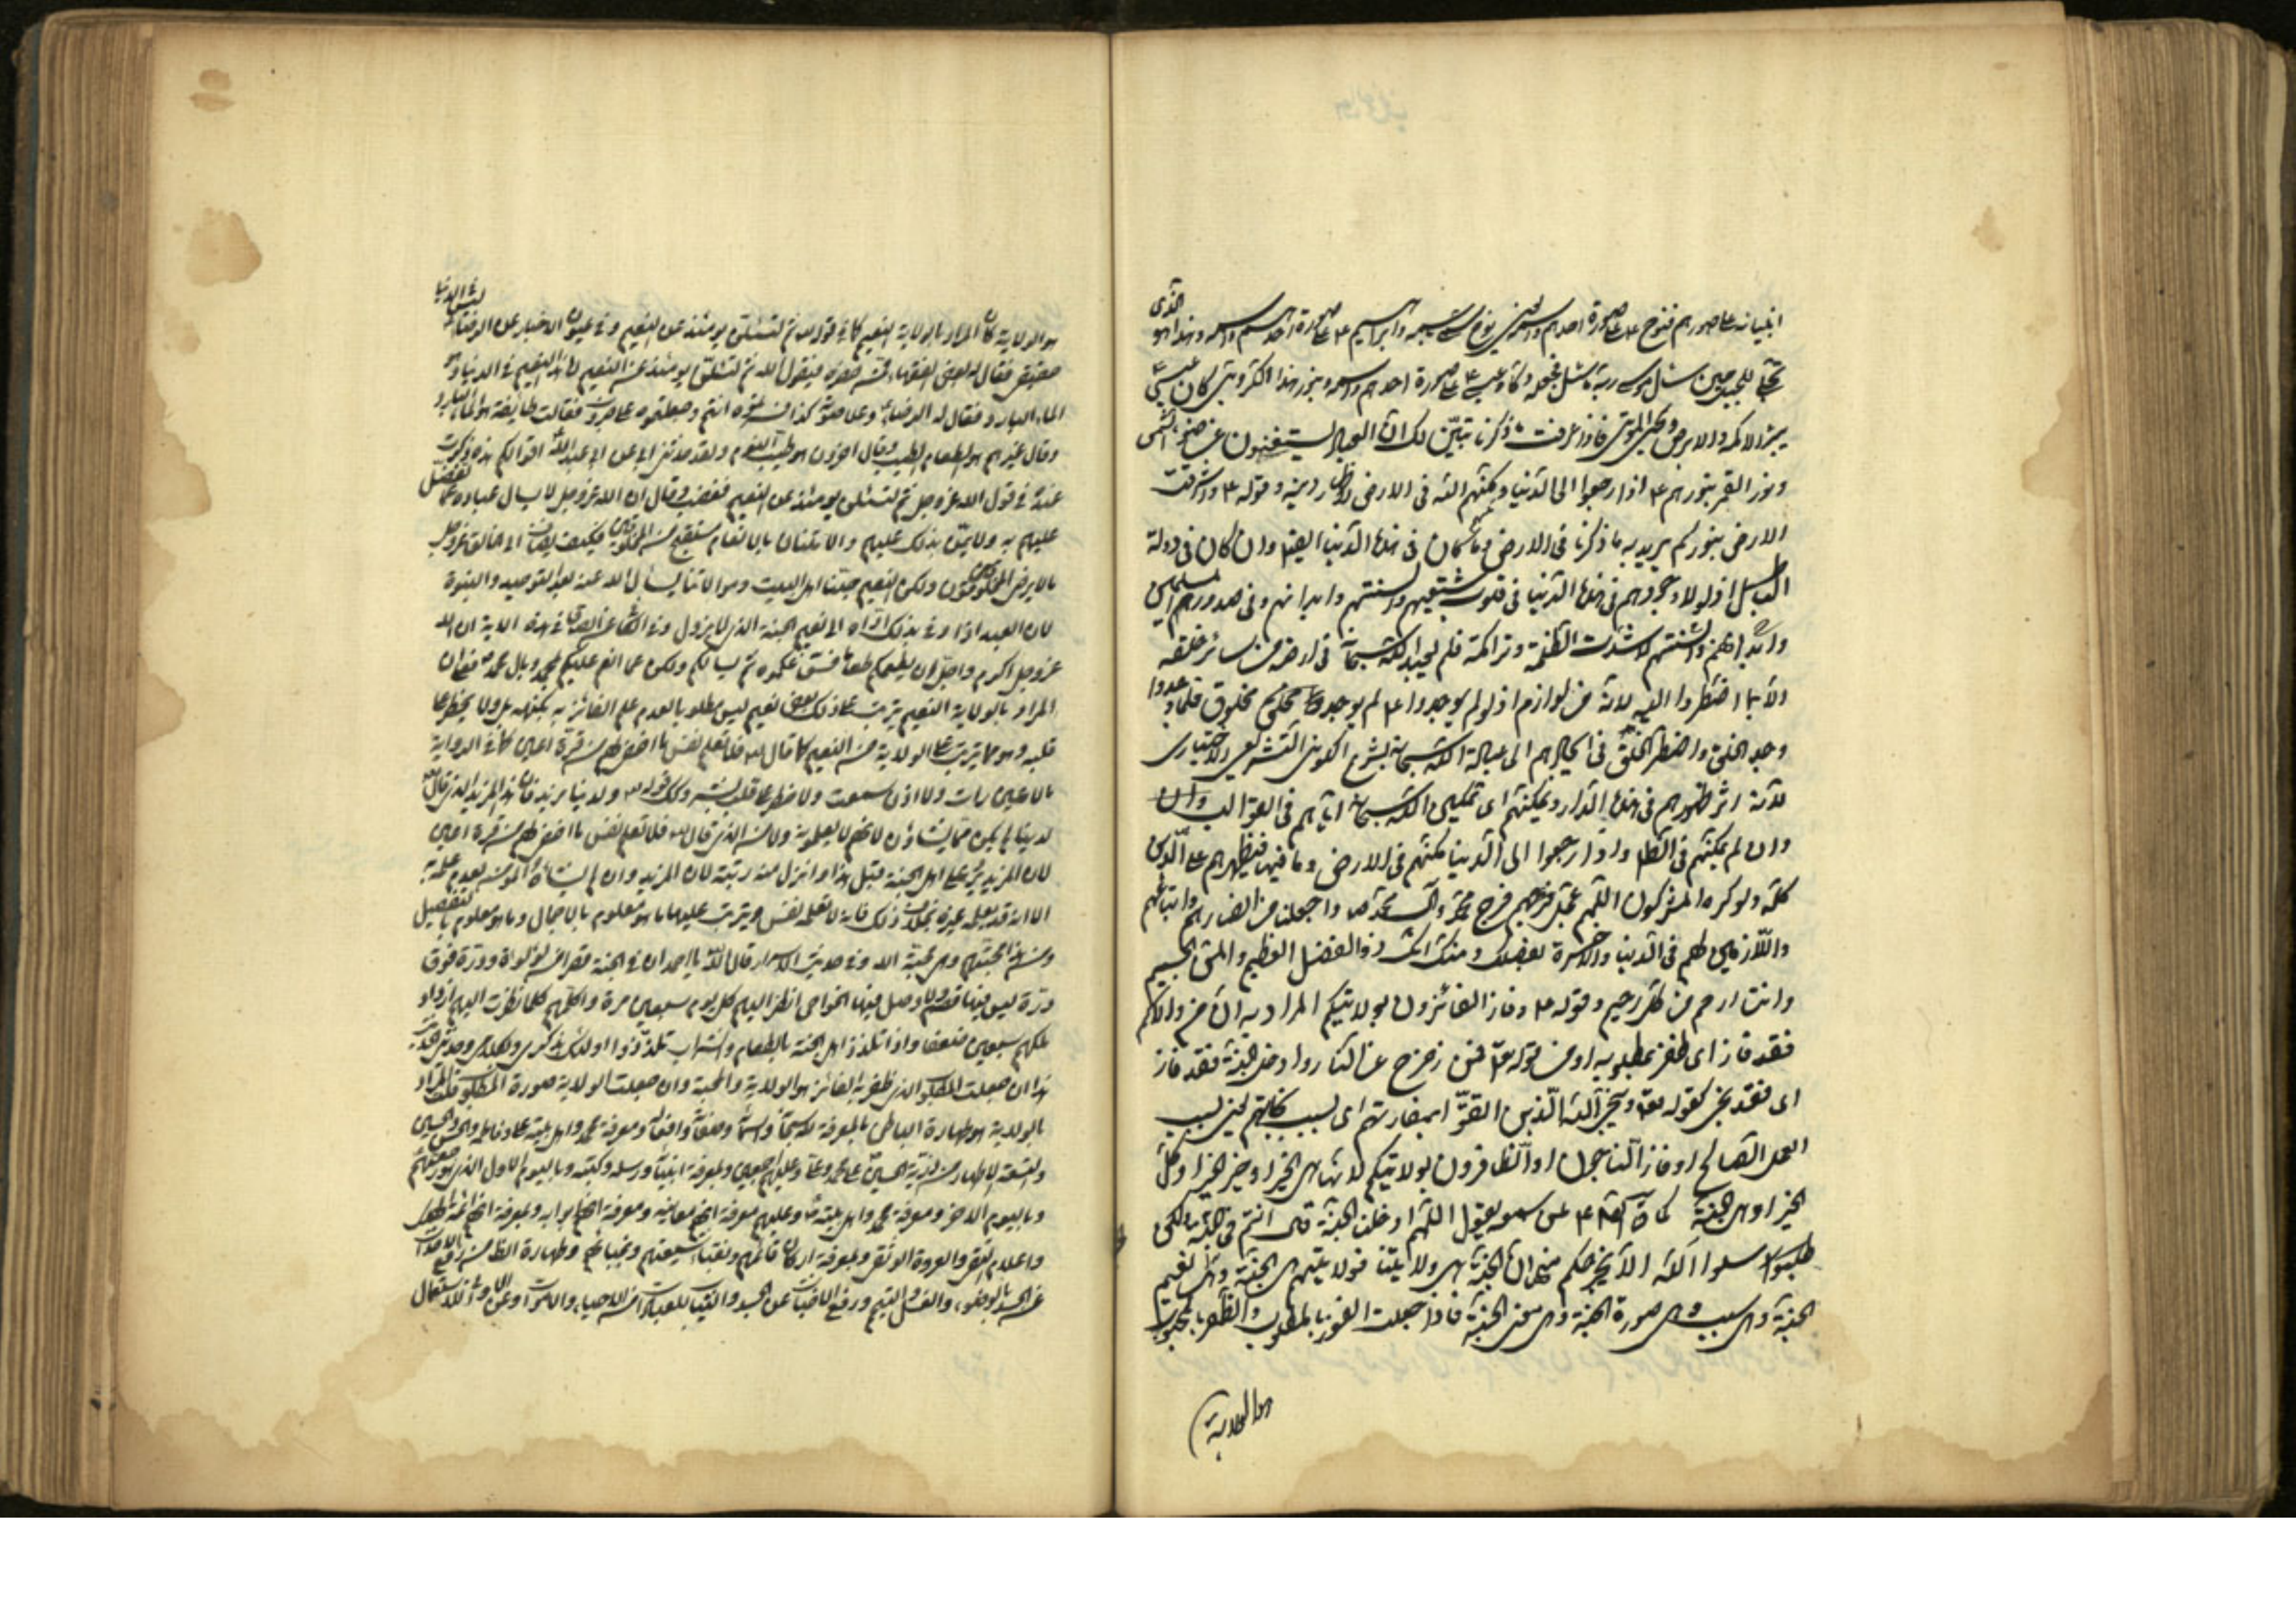 انبيائه على صورهم فنوح ع على صورة احدهم واسمه
تجلى للجبل حين سئل موسى ربه ما سئل فجعله دكا وعيسى ع على صورة احدهم واسمه وبنور هذا الكروبي كان عيسى ع
يبرئ الاكمه والابرص ويحيي الموتى فاذا عرفت ما ذكرنا تبين لك ان العباد يستغنون عن ضوء الشمس
ونور القمر بنورهم ع اذا رجعوا الى الدنيا ومكنهم الله في الارض لاظهار دينه وقوله ع واشرقت
الارض بنوركم يريد به ما ذكرنا في الارض في هذه الدنيا ايضا وان كان في دولة
الباطل اذ لولا وجودهم في هذه الدنيا في قلوب شيعتهم والسنتهم وابدانهم وفي صدور
وابدانهم والسنتهم لاشتدت الظلمة وتراكمت فلم يعبد الله سبحانه في ارضه من سائر خلقه
الا بما اضطروا اليه لانه من لوازم اذ لو لم يوجدوا ع لم يوجد مخلوق فلما وجدوا
وجد الخلق واضطر الخلق في ايجادهم الى عبادة الله سبحانه بشرع الكوني التشريعي والاختياري
لانه اثر ظهورهم في هذه الدار وتمكينهم اى تمكين الله سبحانه اياهم في العوالم وان
وان لم يمكنهم في الظاهر واذا رجعوا الى الدنيا مكنهم في الارض وما فيها فيظهرهم على الدين
كله ولو كره المشركون اللهم عجل فرجهم فرج محمد وآل محمد ص واجعلنا من انصارهم واتباعهم
واللازمين لهم في الدنيا والآخرة بفضلك ومنك انك ذو الفضل العظيم والمن الجسيم
وانت ارحم من كل رحيم وقوله ع وفاز الفائزون بولايتكم المراد به ان من والاكم
فقد فاز اى ظفر بمطلوبه او من قوله تعالى فمن زحزح عن النار وادخل الجنة فقد فاز
اى فقد نجى كقوله تعالى وينجي الله الذين اتقوا بمفازتهم اى بسبب نجاتهم يعني بسبب
العمل الصالح او فاز الناجون او الظافرون بولايتكم لانها هى الخير او خير الخير او كل
الخير او هى الجنة كما قال ع لمن سمعه يقول اللهم ادخلنا الجنة قال انتم في الجنة ولكن
سلوا الله الا يخرجكم منها ان الجنة هى ولايتنا فولايتهم هى الجنة وهى نعيم
الجنة وهى سبب وهى صورة الجنة وهى معنى الجنة فاذا جعلت الفوز بالمطلوب والظفر بالمحبوب
هو الولاية
هو الولاية كان المراد بالولاية النعيم كما في قوله تعالى ثم لتسئلن يومئذ عن النعيم وفي عيون الاخبار عن الرضا ع ليس في الدنيا
نعيم حقيقي فقال له بعض الفقهاء ممن حضره فيقول الله ثم لتسئلن يومئذ عن النعيم اما هذا النعيم في الدنيا وهو
الماء البارد فقال له الرضا ع وعلا صوته كذا فسرتموه انتم وجعلتموه على ضروب فقالت طائفة هو الماء البارد
وقال غيرهم هو الطعام الطيب وقال اخرون هو طيب النوم ولقد حدثني ابي عن ابي عبد الله ان اقوالكم هذه ذكرت
عنده في قول الله عز وجل ثم لتسئلن يومئذ عن النعيم فغضب وقال ان الله عز وجل لا يسال عباده عما تفضل
عليهم به ولا يمن بذلك عليهم والامتنان بالانعام مستقبح من المخلوقين فكيف يضاف الى الخالق عز وجل
ما لا يرضى المخلوقون ولكن النعيم حبنا اهل البيت وموالاتنا يسال الله عنه بعد التوحيد والنبوة
لان العبد اذا وفى بذلك اداه الى نعيم الجنة الذي لا يزول وفي هذه الاية ان الله
عز وجل اكرم واجل ان يطعمكم طعاما فسوغكموه ثم يسالكم ولكن عما انعم عليكم بمحمد وبال محمد ص فان
المراد بالولاية النعيم ترتب على ذلك نعيم ليس مطلوبا لعدم علم الفائز به بكنهه بل ولا يخطر على
قلبه وهو ما يترتب على الولاية من النعيم كما قال تعالى فلا تعلم نفس ما اخفي لهم من قرة اعين كما في الرواية
ما لا عين رات ولا اذن سمعت ولا خطر على قلب بشر وكذا قوله تعالى ولدينا مزيد فان هذا المزيد الذي قال
لدينا لم يكن مما يشاؤن لانهم لا يعلمونه ولا من الذي قال تعالى فلا تعلم نفس ما اخفي لهم من قرة اعين
لان المزيد يرد على اهل الجنة قبل هذا وانزل منه رتبة لان المزيد وان لم يشاه المؤمن لعدم علمه به
الا انه قد يعلمه غيره بخلاف ذلك فانه لا تعلمه نفس ويترتب عليها ما هو معلوم بالاجمال وما هو معلوم بالتفصيل
ومن هذا محبتهم وهي محبة الله وفي حديث الاسراء قال الله يا احمد ان في الجنة قصرا من لؤلؤة ودرة فوق
درة ليس فيها قصم ولا وصل فيها الخواص انظر اليهم كل يوم سبعين مرة واكلمهم كلما نظرت اليهم ازداد
ملكهم سبعين ضعفا واذا تلذذ اهل الجنة بالطعام والشراب تلذذوا اولئك بذكري وكلامي وحديثي
هذا ان جعلت المطلوب الذي ظفر به الفائز هو الولاية والمحبة وان جعلت الولاية صورة المطلوب فالمراد
بالولاية هو طهارة الباطن بالمعرفة لله سبحانه واسمائه وصفاته وافعاله ومعرفة محمد واهل بيته علي وفاطمة والحسن والحسين
والتسعة الاطهار من ذرية الحسين على محمد وعليهم اجمعين وبمعرفة انبيائه ورسله وكتبه وباليوم الاول الذي هو
وباليوم الاخر ومعرفة محمد واهل بيته وعليهم معرفة انهم معانيه ومعرفة انهم ابوابه وبمعرفة انهم
واعلام التقى والعروة الوثقى وبمعرفة اركان قائمهم ونقباء شيعتهم ونجبائهم وطهارة الظاهر من رفع
عن الجسد بالوضوء والغسل والتيمم ورفع الاخباث عن الجسد والثياب للعبادات من الاحياء والاموات وعن الاواني للاستعمال